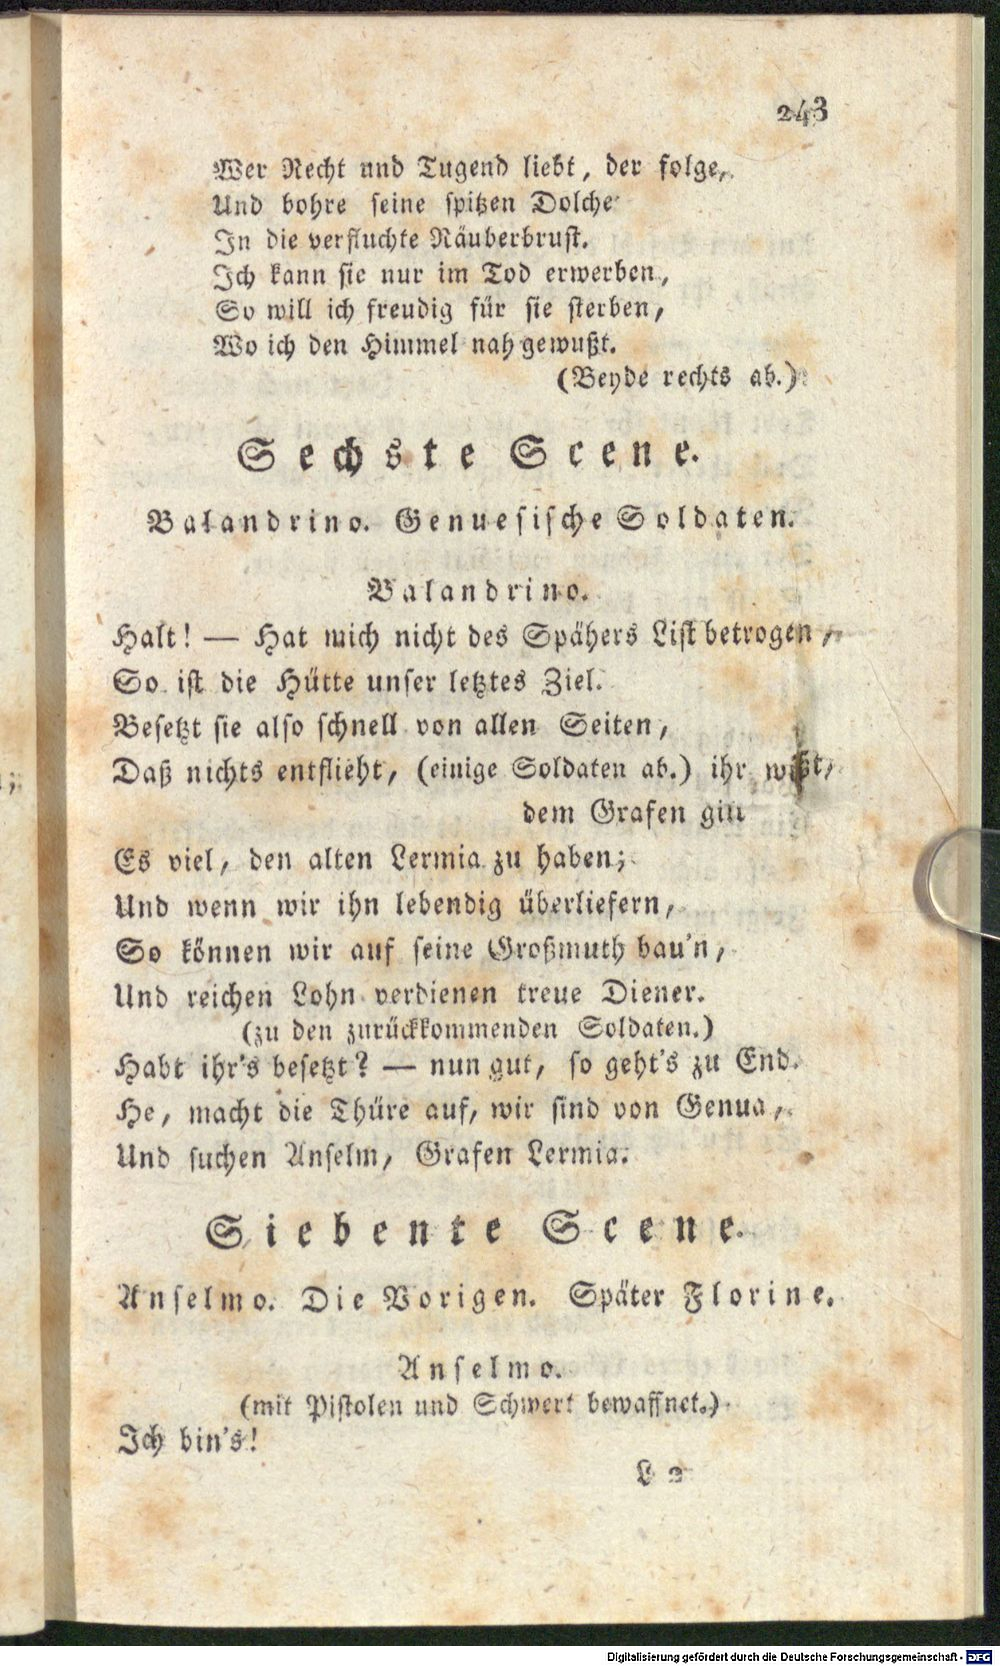 243
Wer Recht und Tugend liebt, der folge,
Und bohre seine spitzen Dolche
In die verfluchte Räuberbrust.
Ich kann sie nur im Tod erwerben,
So will ich freudig für sie sterben,
Wo ich den Himmel nah gewußt.
(Beyde rechts ab.)
Sechste Scene.
Balandrino. Genuesische Soldaten.
Balandrino.
Halt! — Hat mich nicht des Spähers List betrogen,
So ist die Hütte unser letztes Ziel.
Besetzt sie also schnell von allen Seiten,
Daß nichts entflieht, (einige Soldaten ab.) ihr wißt,
dem Grafen gilt
Es viel, den alten Lermia zu haben;
Und wenn wir ihn lebendig überliefern,
So können wir auf seine Großmuth bau'n,
Und reichen Lohn verdienen treue Diener.
(zu den zurückkommenden Soldaten.)
Habt ihr's besetzt? — nun gut, so geht's zu End.
He, macht die Thüre auf, wir sind von Genua,
Und suchen Anselm, Grafen Lermia.
Siebente Scene.
Anselmo. Die Vorigen. Später Florine.
Anselmo.
(mit Pistolen und Schwert bewaffnet.)
Ich bin's!
L 2
Digitalisierung gefördert durch die Deutsche Forschungsgemeinschaft - DFG